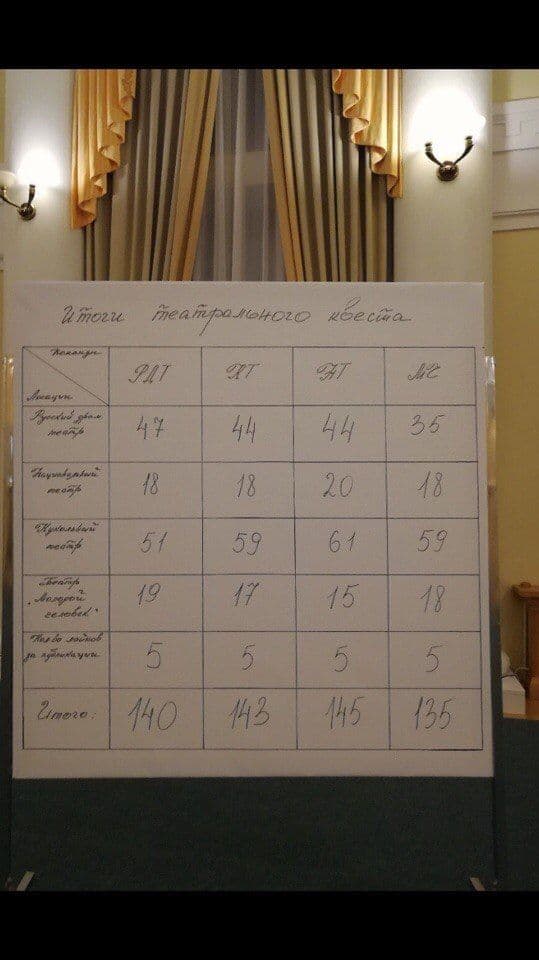 Итоги театрального квеста
Команды
Локации
РДТ КТ НТ МЧ
Русский драм
театр
47 44 44 35
Национальный
театр
18 18 20 18
Кукольный
театр
51 59 61 59
Театр
"Молодой
человек"
19 17 15 18
Кол-во лайков
за публикации
5 5 5 5
Итого: 140 143 145 135